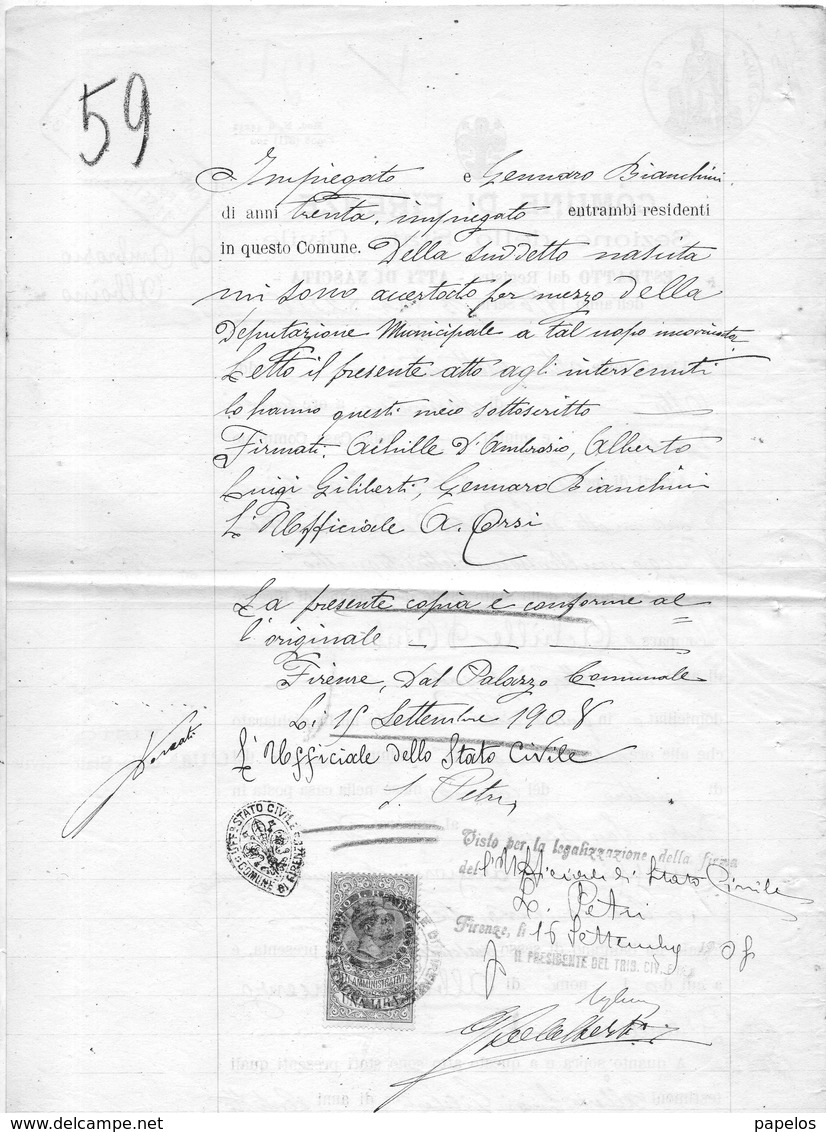 59
Impiegato e Gennaro Bianchini
di anni trenta, impiegato entrambi residenti
in questo Comune. Della suddetto nascita
mi sono accertato per mezzo della
Deputazione Municipale a tal uopo
Letto il presente atto agli intervenuti
lo hanno questi meco sottoscritto
Firmati. Achille d'Ambrosio, Alberto
Luigi Giliberti, Gennaro Bianchini
L'Ufficiale A. Orsi
La presente copia è conforme al
l'originale
Firenze, Dal Palazzo Comunale
Li 15 Settembre 1908
L'Ufficiale dello Stato Civile
Petri
UFF° STATO CIVILE
COMUNE DI FIRENZE
Visto per la legalizzazione della firma
del l'Ufficiale di Stato Civile
L. Petri
Firenze, li 16 Settembre 08
IL PRESIDENTE DEL TRIB. CIV. E
ATTI AMMINISTRATIVI
UNA LIRA
www.delcampe.net
papelos